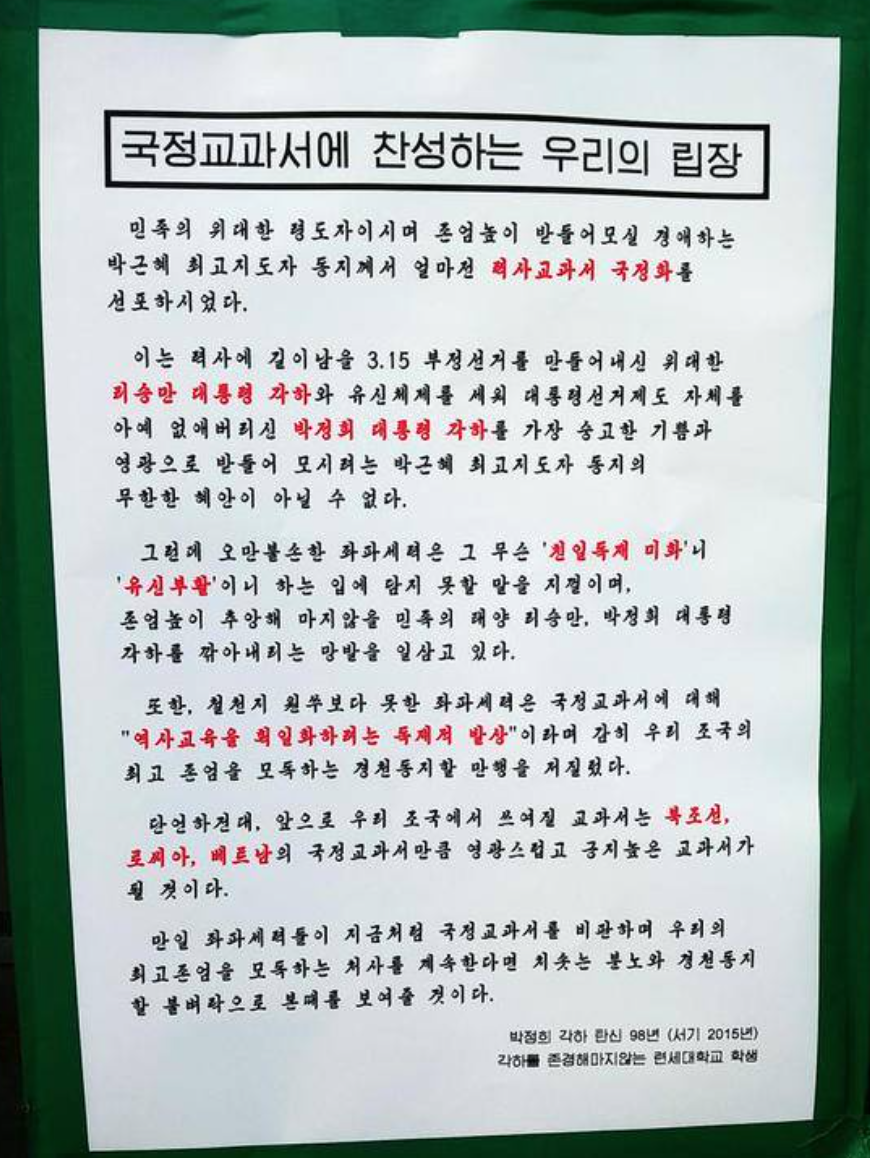 국정교과서에 찬성하는 우리의 립장
민족의 위대한 령도자이시며 존엄높이 받들어모실 경애하는
박근혜 최고지도자 동지께서 얼마전 력사교과서 국정화를
선포하시었다.
이는 력사에 길이남을 3.15 부정선거를 만들어내신 위대한
리승만 대통령 각하와 유신체제를 세워 대통령선거제도 자체를
아예 없애버리신 박정희 대통령 각하를 가장 숭고한 기쁨과
영광으로 받들어 모시려는 박근혜 최고지도자 동지의
무한한 혜안이 아닐 수 없다.
그런데 오만불손한 좌파세력은 그 무슨 '친일독재 미화'니
'유신부활'이니 하는 입에 담지 못할 말을 지껄이며,
존엄높이 추앙해 마지않을 민족의 태양 리승만, 박정희 대통령
각하를 깎아내리는 망발을 일삼고 있다.
또한, 철천지 원쑤보다 못한 좌파세력은 국정교과서에 대해
"역사교육을 획일화하려는 독재적 발상"이라며 감히 우리 조국의
최고 존엄을 모독하는 경천동지할 만행을 저질렀다.
단언하건대, 앞으로 우리 조국에서 쓰여질 교과서는 북조선,
로씨아, 베트남의 국정교과서만큼 영광스럽고 긍지높은 교과서가
될 것이다.
만일 좌파세력들이 지금처럼 국정교과서를 비판하며 우리의
최고존엄을 모독하는 처사를 계속한다면 치솟는 분노와 경천동지
할 불벼락으로 본때를 보여줄 것이다.
박정희 각하 탄신 98년 (서기 2015년)
각하를 존경해마지않는 련세대학교 학생